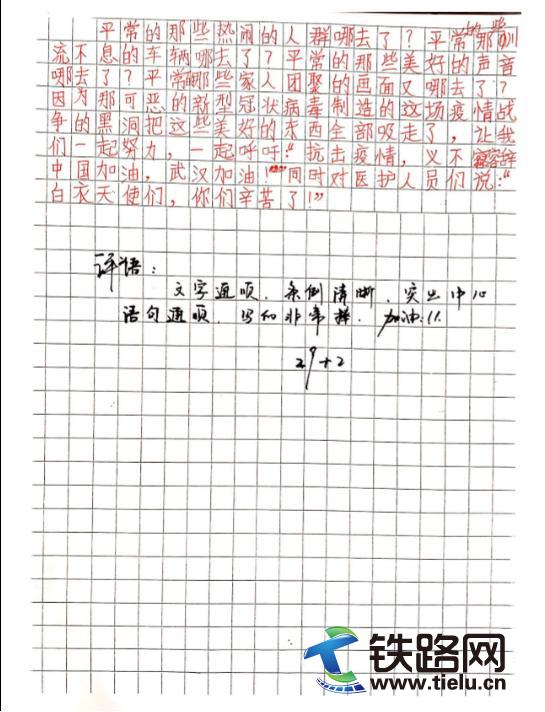 平常的那些热闹的人群哪去了？平常的那些川
流不息的车辆哪去了？平常的那些美好的声音
哪去了？平常那些家人团聚的画面又哪去了？
因为那可恶的新型冠状病毒制造的这场疫情战
争的黑洞把这些美好的东西全部吸走了，让我
们一起努力，一起呼吁：“抗击疫情，义不容辞
中国加油，武汉加油！”同时对医护人员们说：“
白衣天使们，你们辛苦了！”
评语：
文字通顺、条例清晰、突出中心
语句通顺、写的非常棒、加油！！
29+2
铁路网
www.tielu.cn